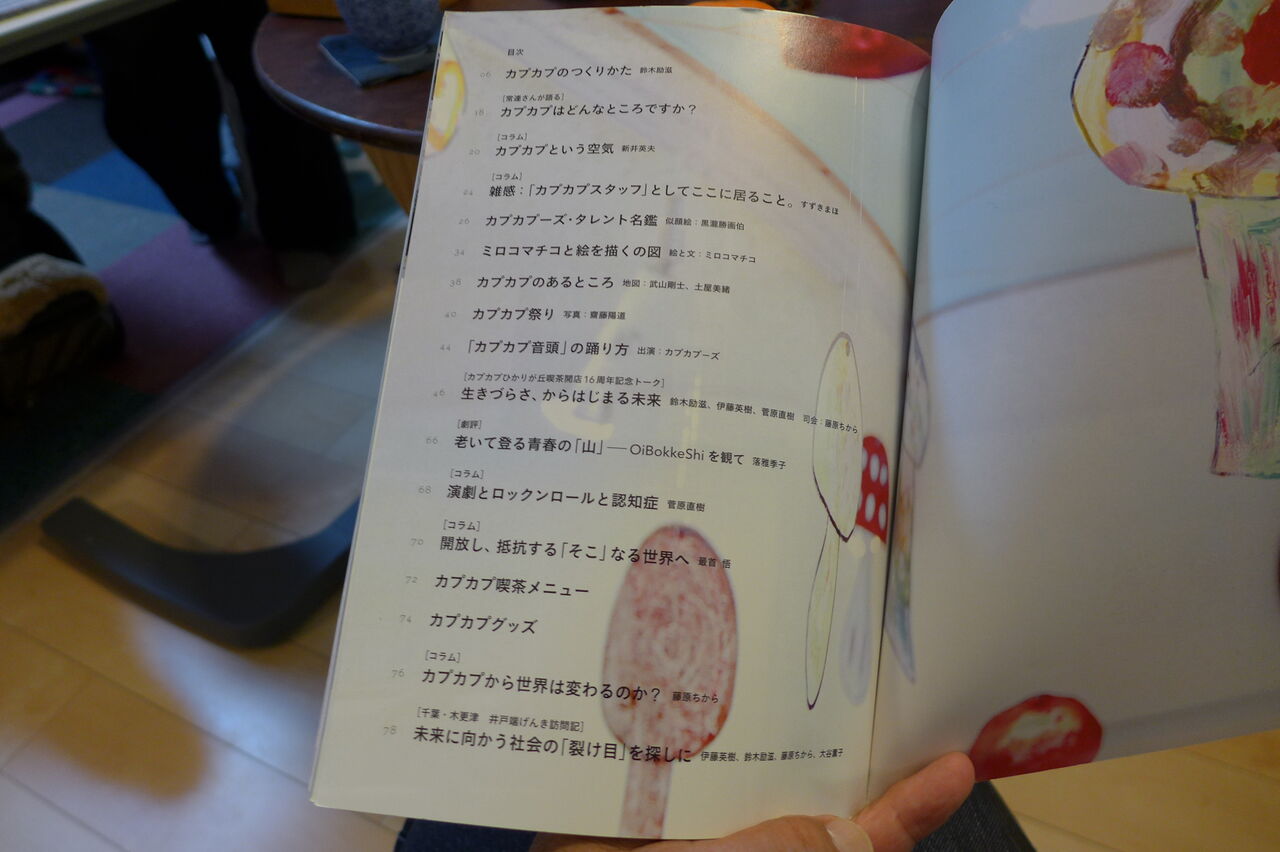 目次
06 カプカプのつくりかた 鈴木励滋
[常連さんが語る]
18 カプカプはどんなところですか？
[コラム]
20 カプカプという空気 新井英夫
[コラム]
24 雑感：「カプカプスタッフ」としてここに居ること。 すずきまほ
26 カプカプーズ・タレント名鑑 似顔絵：黒瀧勝画伯
34 ミロコマチコと絵を描くの図 絵と文：ミロコマチコ
38 カプカプのあるところ 地図：武山剛士、土屋美緒
40 カプカプ祭り 写真：齋藤陽道
44 「カプカプ音頭」の踊り方 出演：カプカプーズ
[カプカプひかりが丘喫茶開店16周年記念トーク]
46 生きづらさ、からはじまる未来 鈴木励滋、伊藤英樹、菅原直樹 司会：藤原ちから
[劇評]
66 老いて登る青春の「山」——OiBokkeShiを観て 落雅季子
[コラム]
68 演劇とロックンロールと認知症 菅原直樹
[コラム]
70 開放し、抵抗する「そこ」なる世界へ 最首 悟
72 カプカプ喫茶メニュー
74 カプカプグッズ
[コラム]
76 カプカプから世界は変わるのか？ 藤原ちから
[千葉・木更津 井戸端げんき訪問記]
78 未来に向かう社会の「裂け目」を探しに 伊藤英樹、鈴木励滋、藤原ちから、大谷薫子